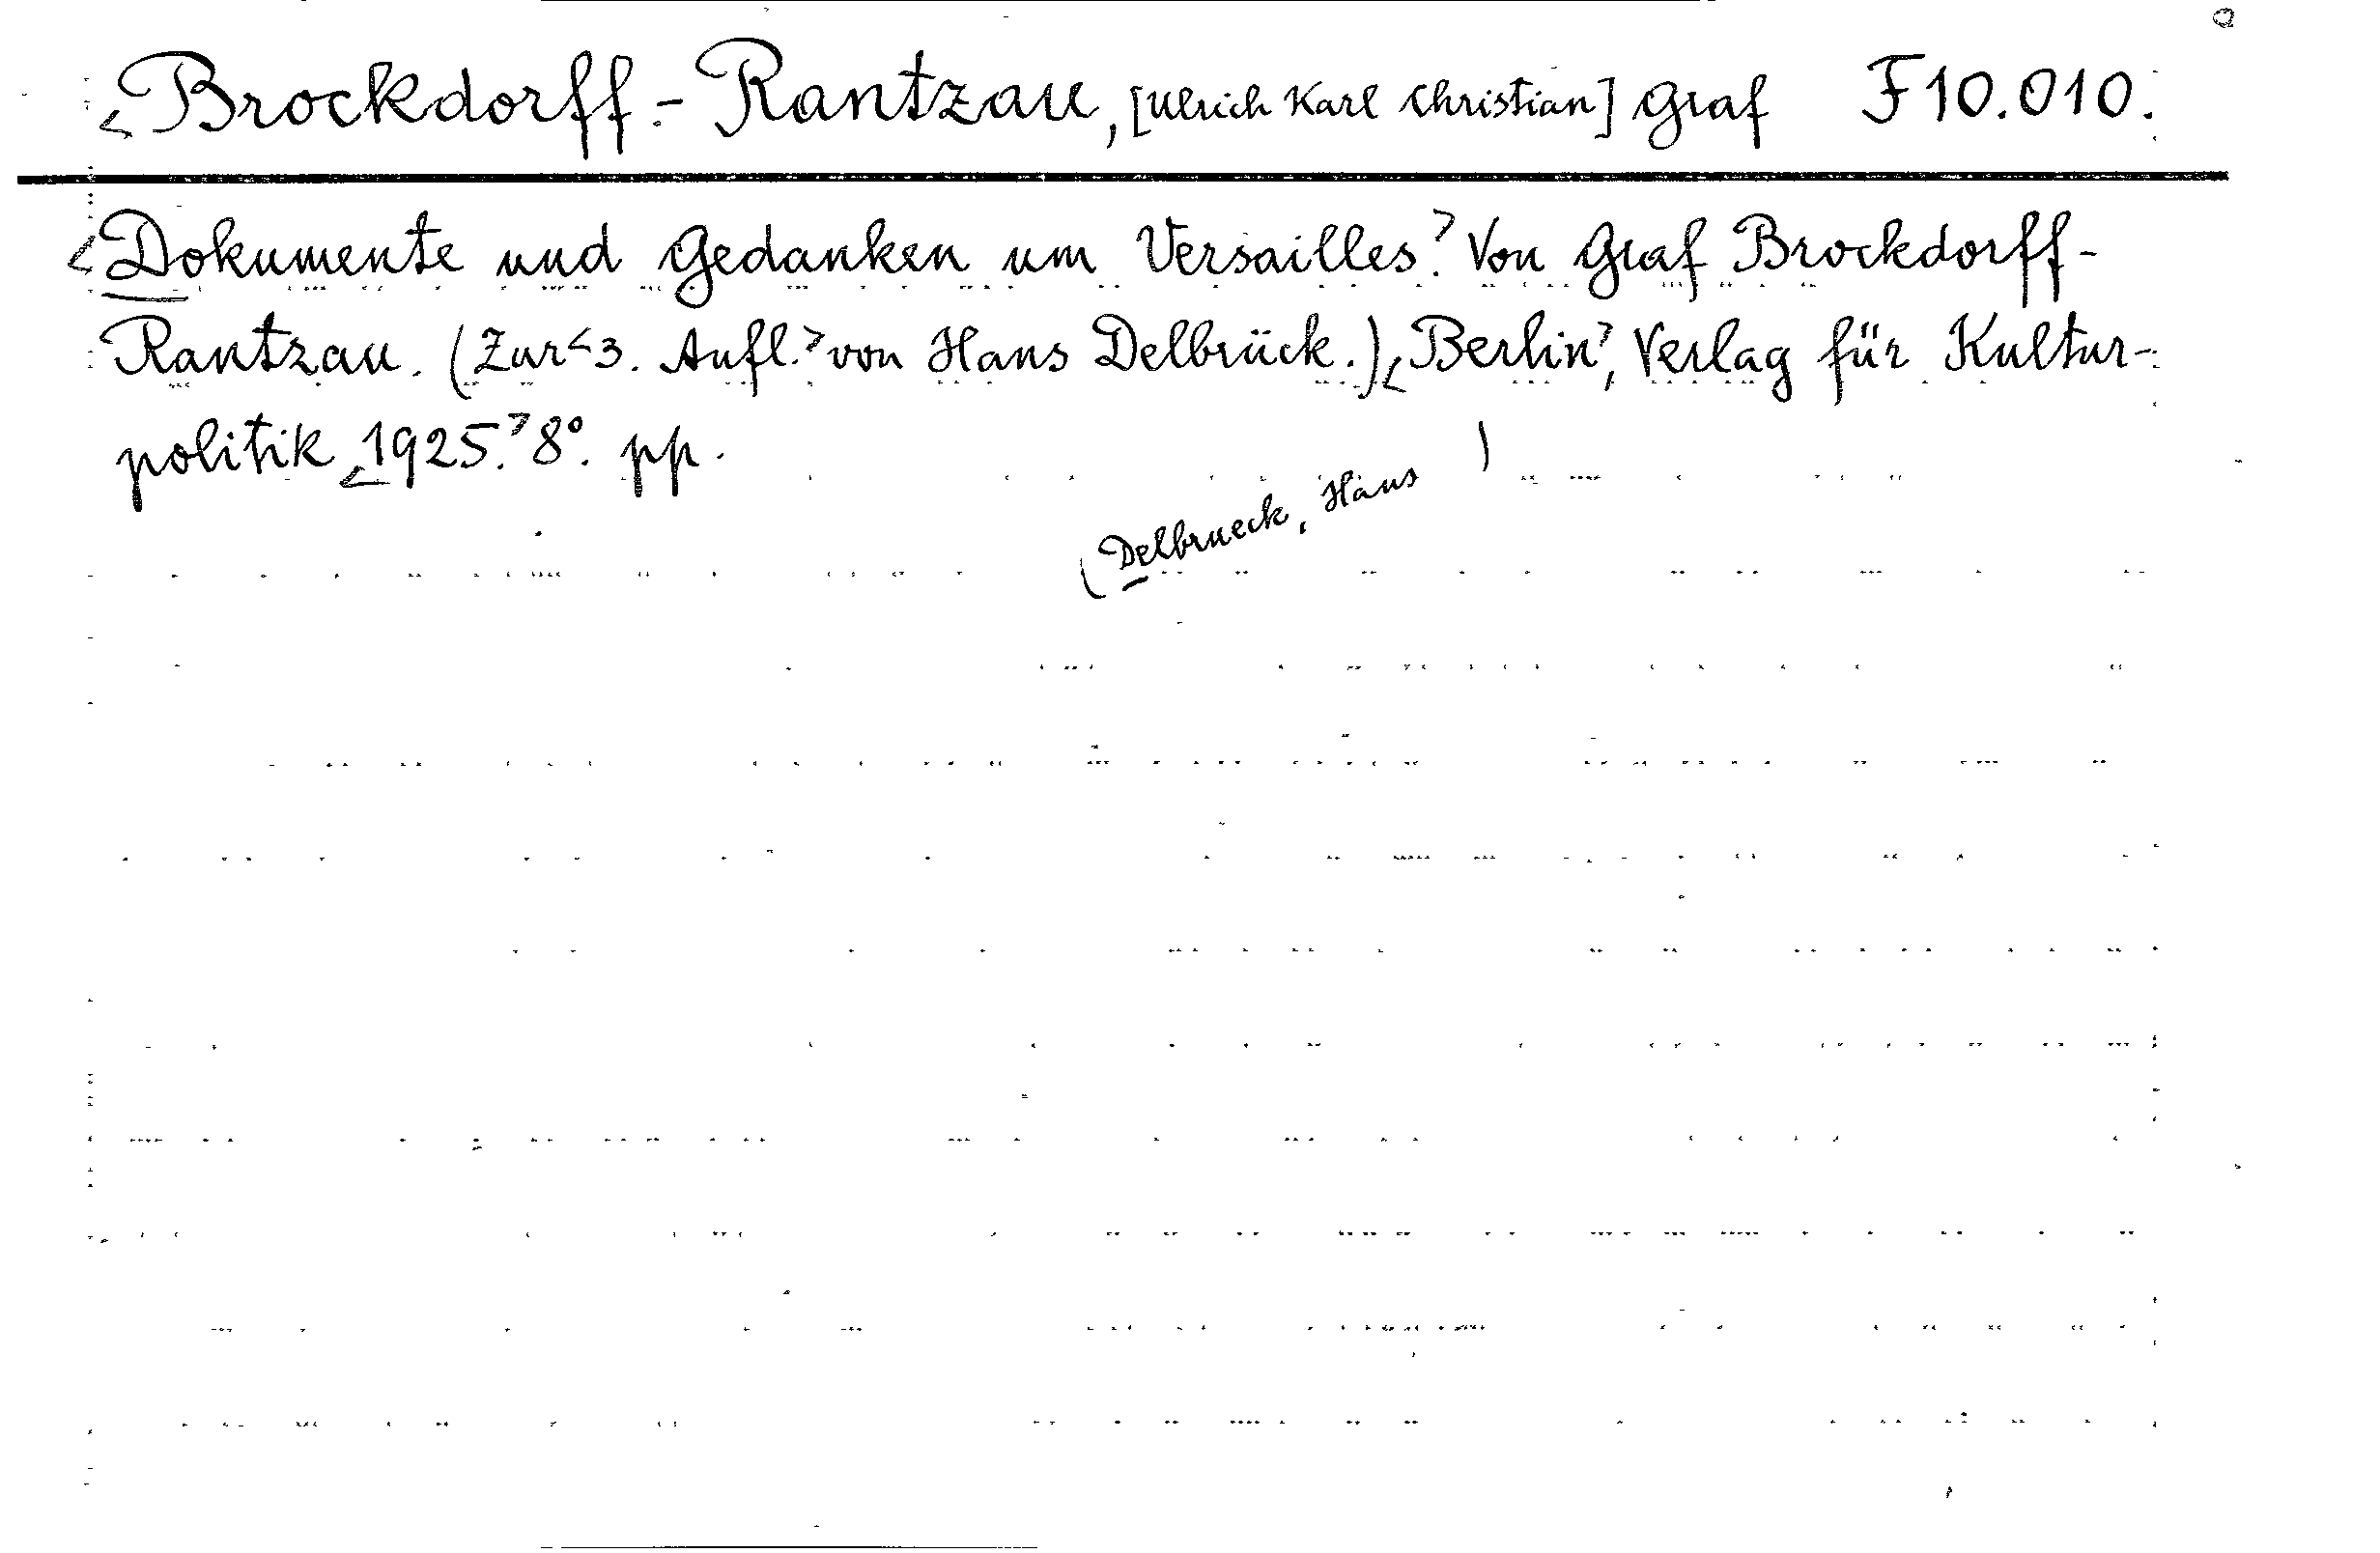 <Brockdorff-Rantzau, [Ulrich Karl Christian] Graf F10.010.
<Dokumente und Gedanken um Versailles.> Von Graf Brockdorff-
Rantzau. (Zur <3. Aufl.> von Hans Delbrück.) <Berlin>, Verlag für Kultur-
politik <1925.> 8°. pp.
(Delbrueck, Hans )